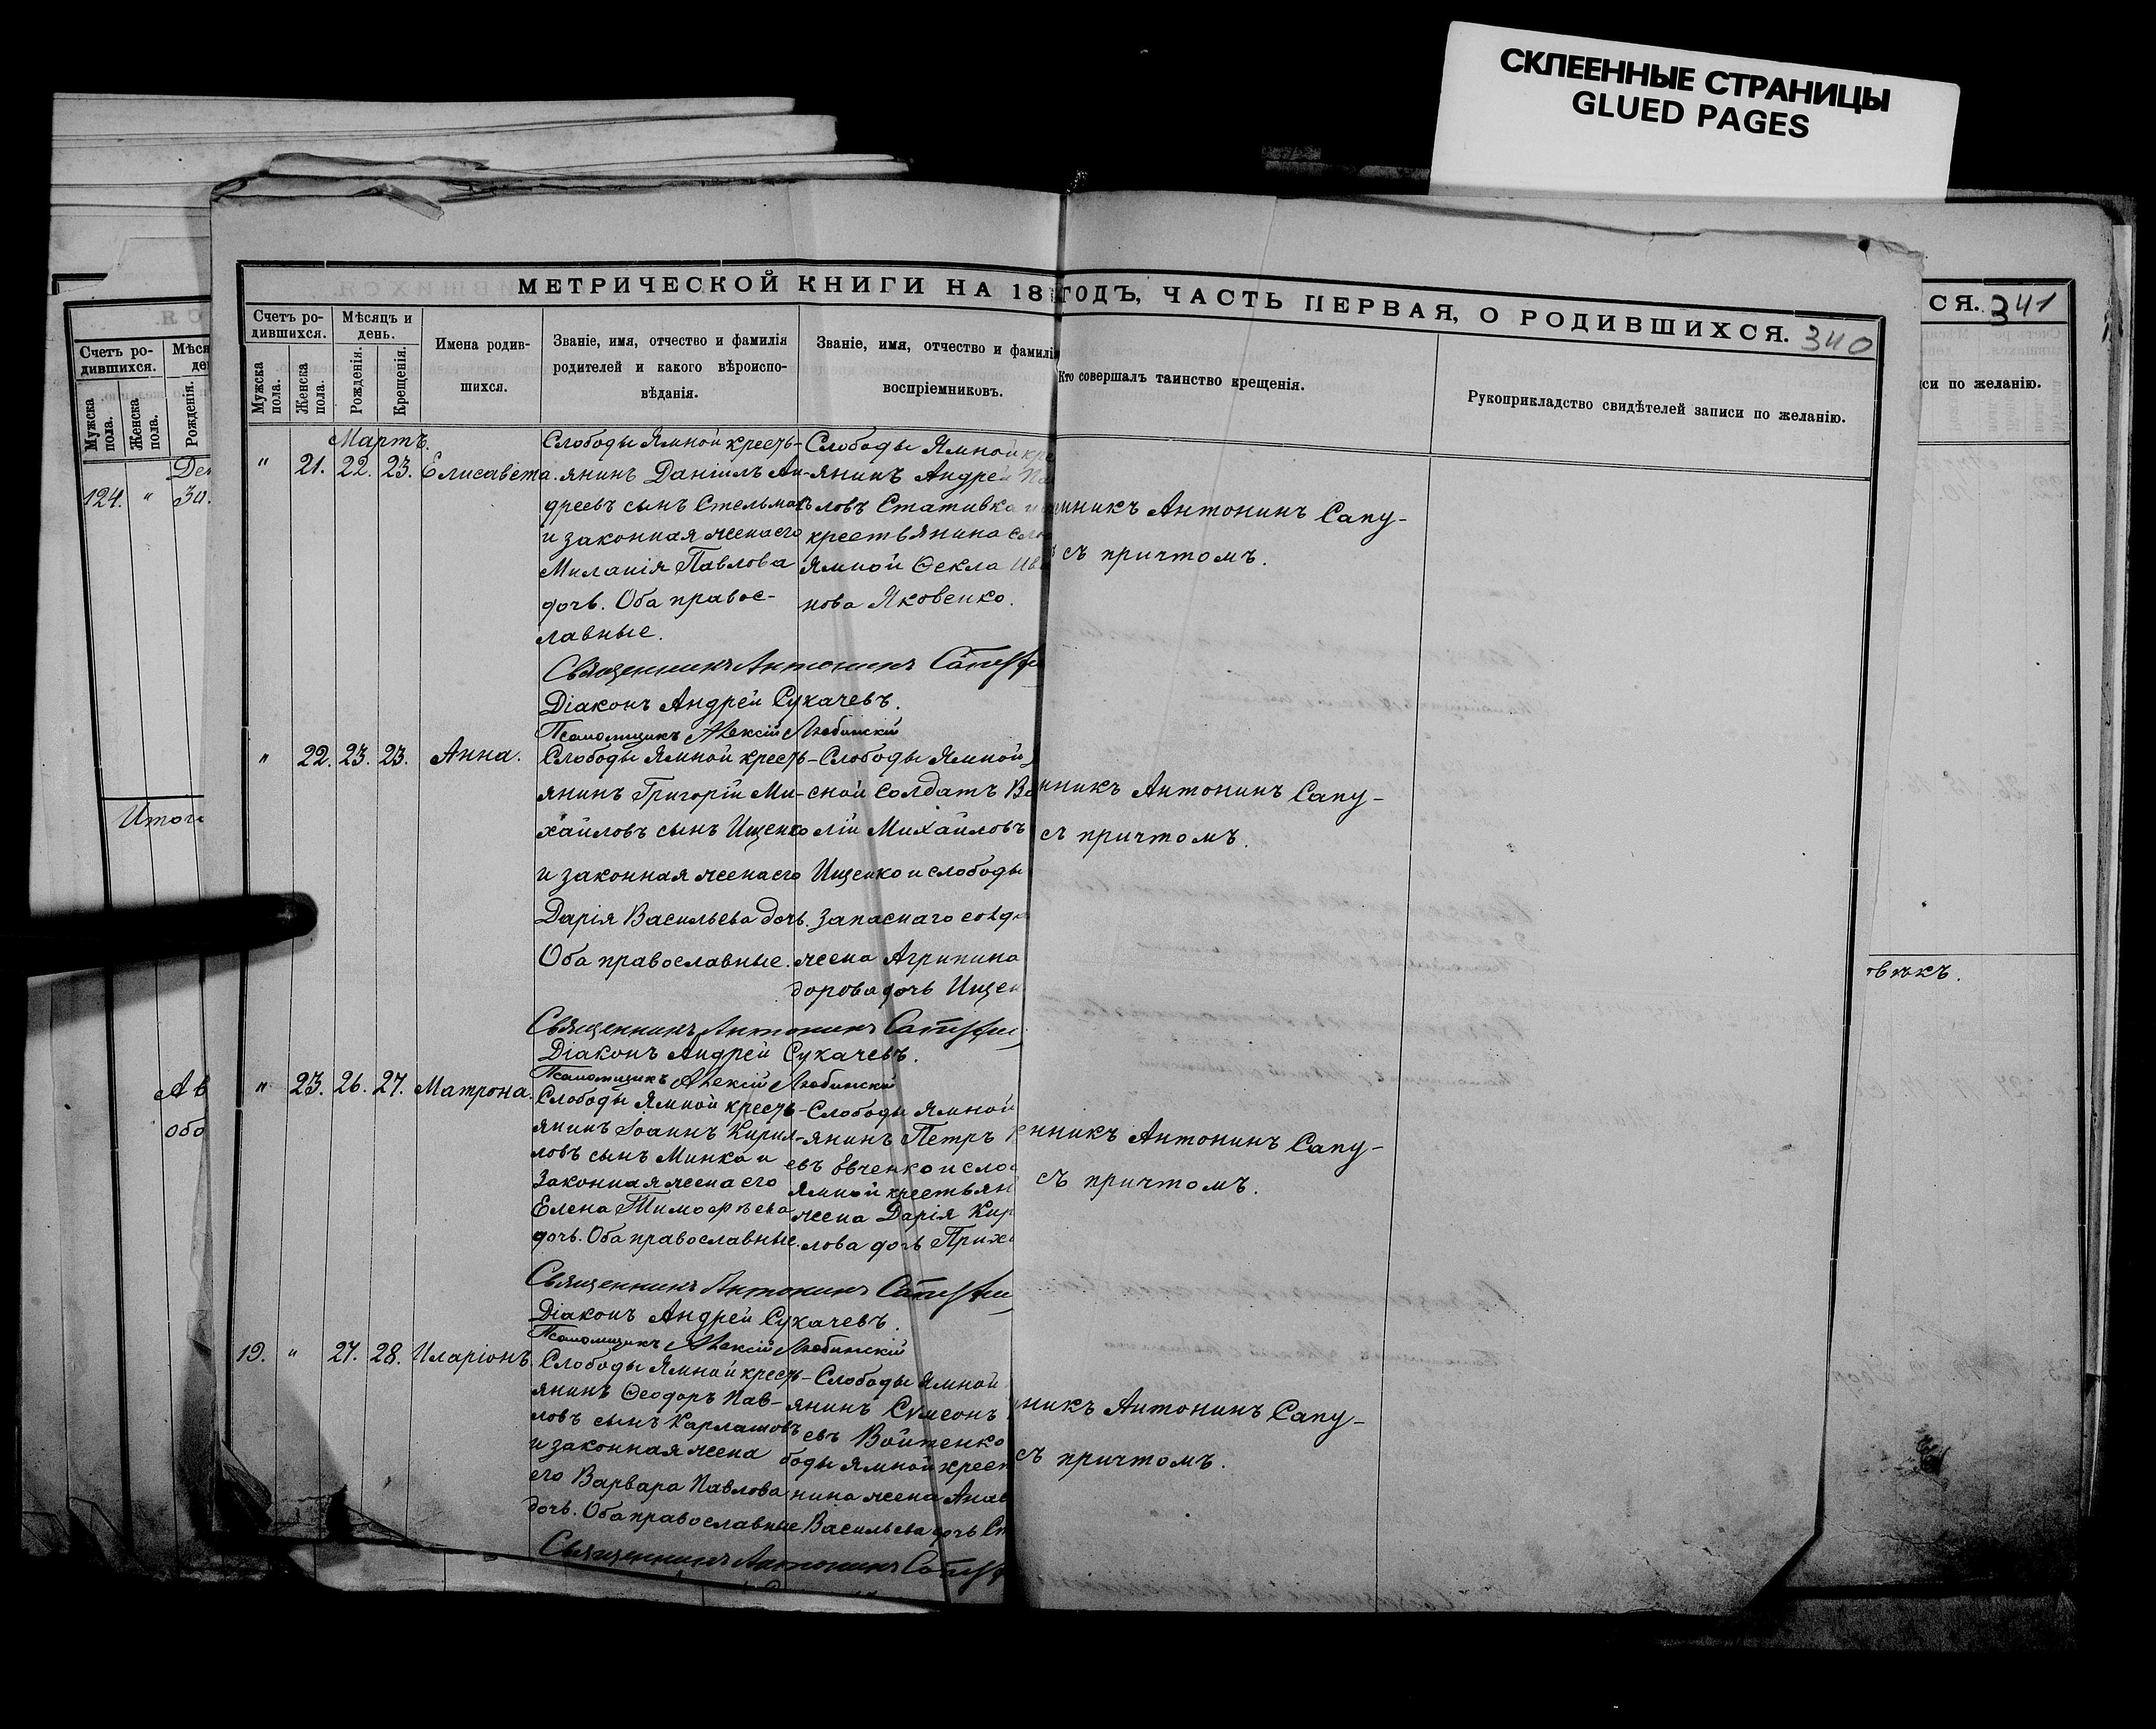 СКЛЕЕННЫЕ СТРАНИЦЫ
GLUED PAGES
СЯ. 341
си по желанію.
Счетъ ро-
дившихся.
Мужска пола.
Женска пола.
Рожденія.
124. " 30.
МЕТРИЧЕСКОЙ КНИГИ НА 18 ГОДЪ, ЧАСТЬ ПЕРВАЯ, О РОДИВШИХСЯ. 340
Счетъ ро-
дившихся.
Мѣсяцъ и
день.
Мужска пола.
Женска пола.
Рожденія.
Крещенія.
Имена родив-
шихся.
Званіе, имя, отчество и фамилія
родителей и какого вѣроиспо-
вѣданія.
Званіе, имя, отчество и фамилі
воспріемниковъ.
Кто совершалъ таинство крещенія.
Рукоприкладство свидѣтелей записи по желанію.
Мартъ.
" 21. 22. 23. Елисавета.
Слободы Ямной кресть-
янинъ Даніилъ Ан-
дреевъ сынъ Стельмахъ
и законная жена его
Миланія Павлова
дочь. Оба правос-
лавные.
Слободы Ямной кре
янинъ Андрей Па
ловъ Стативка и
крестьянина сло
Ямной Ѳекла Ива
нова Яковенко.
нникъ Антонинъ Сапу-
съ причтомъ.
Священникъ Антонинъ
Діаконъ Андрей Сукачевъ.
Псаломщикъ Алексій Любинскій
" 22. 23. 23. Анна.
Слободы Ямной кресть-
янинъ Григорій Ми-
хайловъ сынъ Ищенко
и законная жена его
Дарія Васильева дочь.
Оба православные.
Слободы Ямной
сной солдатъ Ва
лій Михайловъ
Ищенко и слободы
запаснаго солда
жена Агрипина
дорова дочь Ищен
нникъ Антонинъ Сапу-
съ причтомъ.
Священникъ Антонинъ
Діаконъ Андрей Сукачевъ.
Псаломщикъ Алексій Любинскій
" 23. 26. 27. Матрона.
Слободы Ямной кресть-
янинъ Іоаннъ Кирил-
ловъ сынъ Минка и
законная жена его
Елена Тимоѳѣева
дочь. Оба православные.
Слободы Ямной
янинъ Петръ
евъ Евченко и сло
Ямной крестьян
жена Дарія Кир
лова дочь Прих
нникъ Антонинъ Сапу-
съ причтомъ.
Священникъ Антонинъ
Діаконъ Андрей Сукачевъ.
Псаломщикъ Алексій Любинскій
19. " 27. 28. Иларіонъ.
Слободы Ямной кресть-
янинъ Ѳеодоръ Пав-
ловъ сынъ Карлашовъ
и законная жена
его Варвара Павлова
дочь. Оба православные
Слободы Ямной
янинъ Сѵмеонъ
евъ Войтенко
боды Ямной крест
нина жена Анас
Васильева дочь Ст
никъ Антонинъ Сапу-
съ причтомъ.
Священникъ Антонинъ
Итого
Ав
обо
овѣкъ.